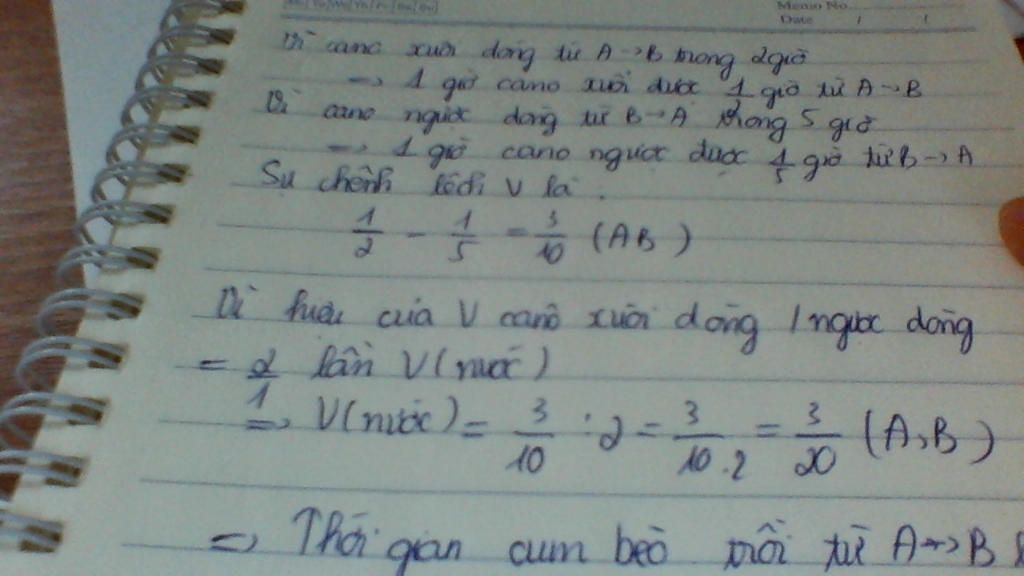 Memo No.
Date / /
Vì cano xuôi dòng từ A → B trong 2 giờ
→ 1 giờ cano xuôi được 1/2 giờ từ A → B
Vì cano ngược dòng từ B → A trong 5 giờ
→ 1 giờ cano ngược được 1/5 giờ từ B → A
Sự chênh lệch V là :
1/2 - 1/5 = 3/10 (AB)
Vì hiệu của V canô xuôi dòng / ngược dòng
= 2/1 lần V (nước)
=> V(nước) = 3/10 : 2 = 3/10.2 = 3/20 (A,B)
=> Thời gian cum bèo trôi từ A → B